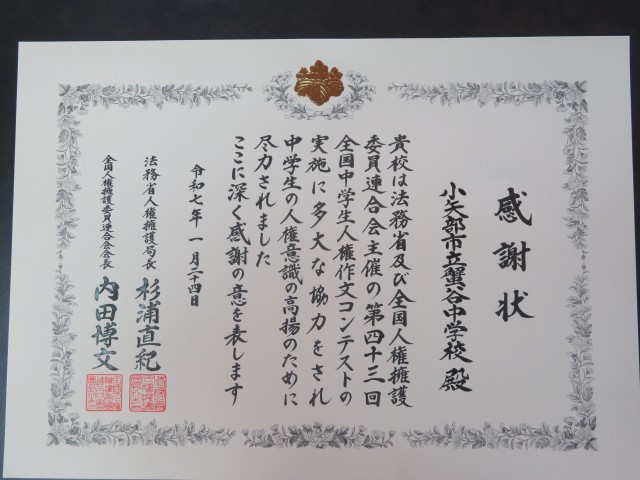 感謝状
小矢部市立蟹谷中学校 殿
貴校は法務省及び全国人権擁護
委員連合会主催の第四十三回
全国中学生人権作文コンテストの
実施に多大な協力をされ
中学生の人権意識の高揚のために
尽力されました
ここに深く感謝の意を表します
令和七年一月二十四日
法務省人権擁護局長 杉浦直紀
全国人権擁護委員連合会会長 内田博文